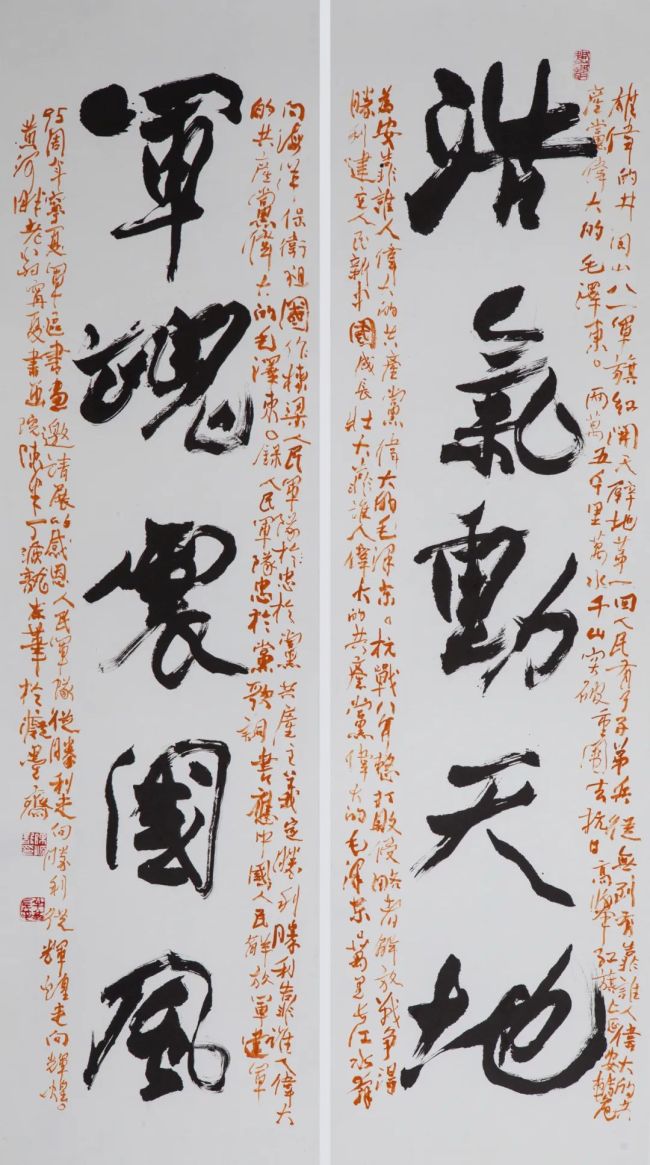 浩氣動天地
雄偉的井岡山八一軍旗紅開天辟地第一回人民有了子弟兵從無到有靠誰人偉大的共
產黨偉大的毛澤東。兩萬五千里萬水千山突破重圍去抗日高舉紅旗上延安轉危
為安靠誰人偉大的共產黨偉大的毛澤東。抗戰八年整打敗侵略者解放戰爭得
勝利建立人民新中國成長壯大靠誰人偉大的共產黨偉大的毛澤東萬里長江水奔
軍魂震國風
向海洋保衛祖國作棟梁人民軍隊於忠於黨共產主義定勝利勝利靠誰人偉大
的共產黨偉大的毛澤東。錄人民軍隊忠於黨歌詞書應中國人民解放軍建軍
95周年寧夏軍區書畫邀請展以感恩人民軍隊從勝利走向勝利從輝煌走向輝煌。
黃河畔老翁寧夏書畫院於癡墨齋